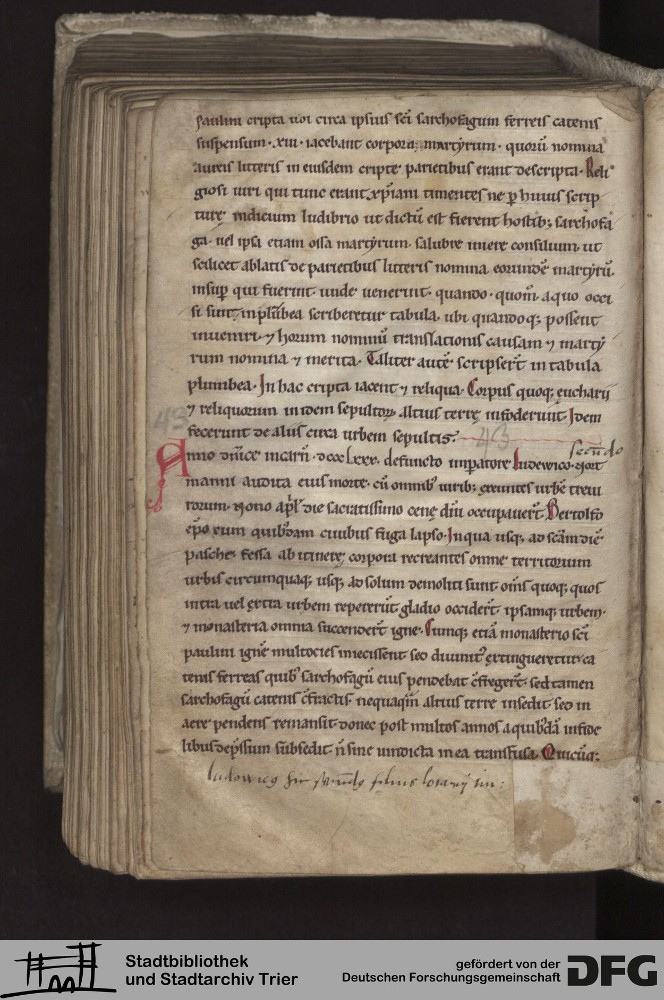 paulini cripta ubi circa ipsius sc̄i sarchofagum ferreis catenis
suspensum · xiii · iacebant corpora martyrum · quorū nomina
aureis litteris in eiusdem cripte parietibus erant descripta · Reli
giosi uiri qui tunc erant xp̄iani timentes ne p huius scrip
turę indicium ludibrio ut dictū est fierent hostib; sarchofa
ga · uel ipsa etiam ossa martyrum · salubre iniere consilium · ut
scilicet ablatis de parietibus litteris nomina eorundē martyrū ·
insup qui fuerint unde uenerint · quando · quom̄ · a quo occi
si sunt, in plūbea scriberetur tabula · ubi quandoq; possent
inueniri · ⁊ horum nominū translationis causam ⁊ marty
rum nomina ⁊ merita · Taliter autē scripser̄t in tabula
plumbea · In hac cripta iacent ⁊ reliqua · Corpus quoq; eucharii
⁊ reliquorum inidem sepultorū altius terrę infoderunt · Idem
fecerunt de aliis circa urbem sepultis ·
43 43
secūdo
Anno dn̄icę incarn̄ · dccc lxxx · defuncto imp̄atore ludewico · nort
manni audita eius morte · cū omnib uirib; exeuntes urbē treui
rorum · nono ap̄l die sacratissimo cenę dn̄i occupauer̄t · Bertolfo
ep̄o eum quibdam ciuibus fuga lapso · In qua usq; ad sc̄am diē
paschę · fessa ab itinere corpora recreantes omne territorium
urbis circumquaq; usq; ad solum demoliti sunt · om̄s quoq; quos
intra uel extra urbem repererūt gladio occider̄t · ipsamq; urbem ·
⁊ monasteria omnia succender̄t igne · Cumq; etiā monasterio sc̄i
paulini ignē multocies iniecissent sed diuinit extingueretur · ca
tenis ferreas quib sarchofagū eius pendebat c̄fregert · sed tamen
sarchofagū catenis c̄fractis nequaquā altius terre insedit sed in
aere pendens remansit · donec post multos annos a quibdā infide
libus depssum subsedit n̄ sine uindicta in ea transfusa · Quicūq;
ludowicus secūdo filius lotarii
Stadtbibliothek
und Stadtarchiv Trier
gefördert von der
Deutschen Forschungsgemeinschaft DFG